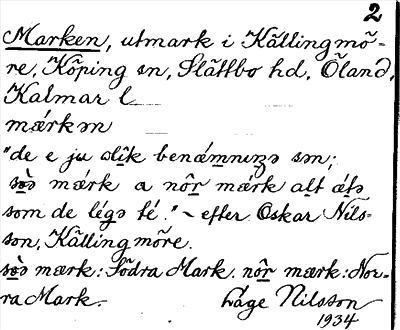 2
Marken, utmark i Källingmö-
re, Köping sn, Slättbo hd, Öland,
Kalmar l
mǽrkən
"de e ju olîk benä́mnıŋə sən;
sø̀ə mǽrk a nôr mǽrk alt ǽtə
som de légə té." ~ efter Oskar Nils-
son, Källingmöre.
sø̀ə mærk: Södra Mark. nôr mærk: Nor-
ra Mark.
Låge Nilsson
1934